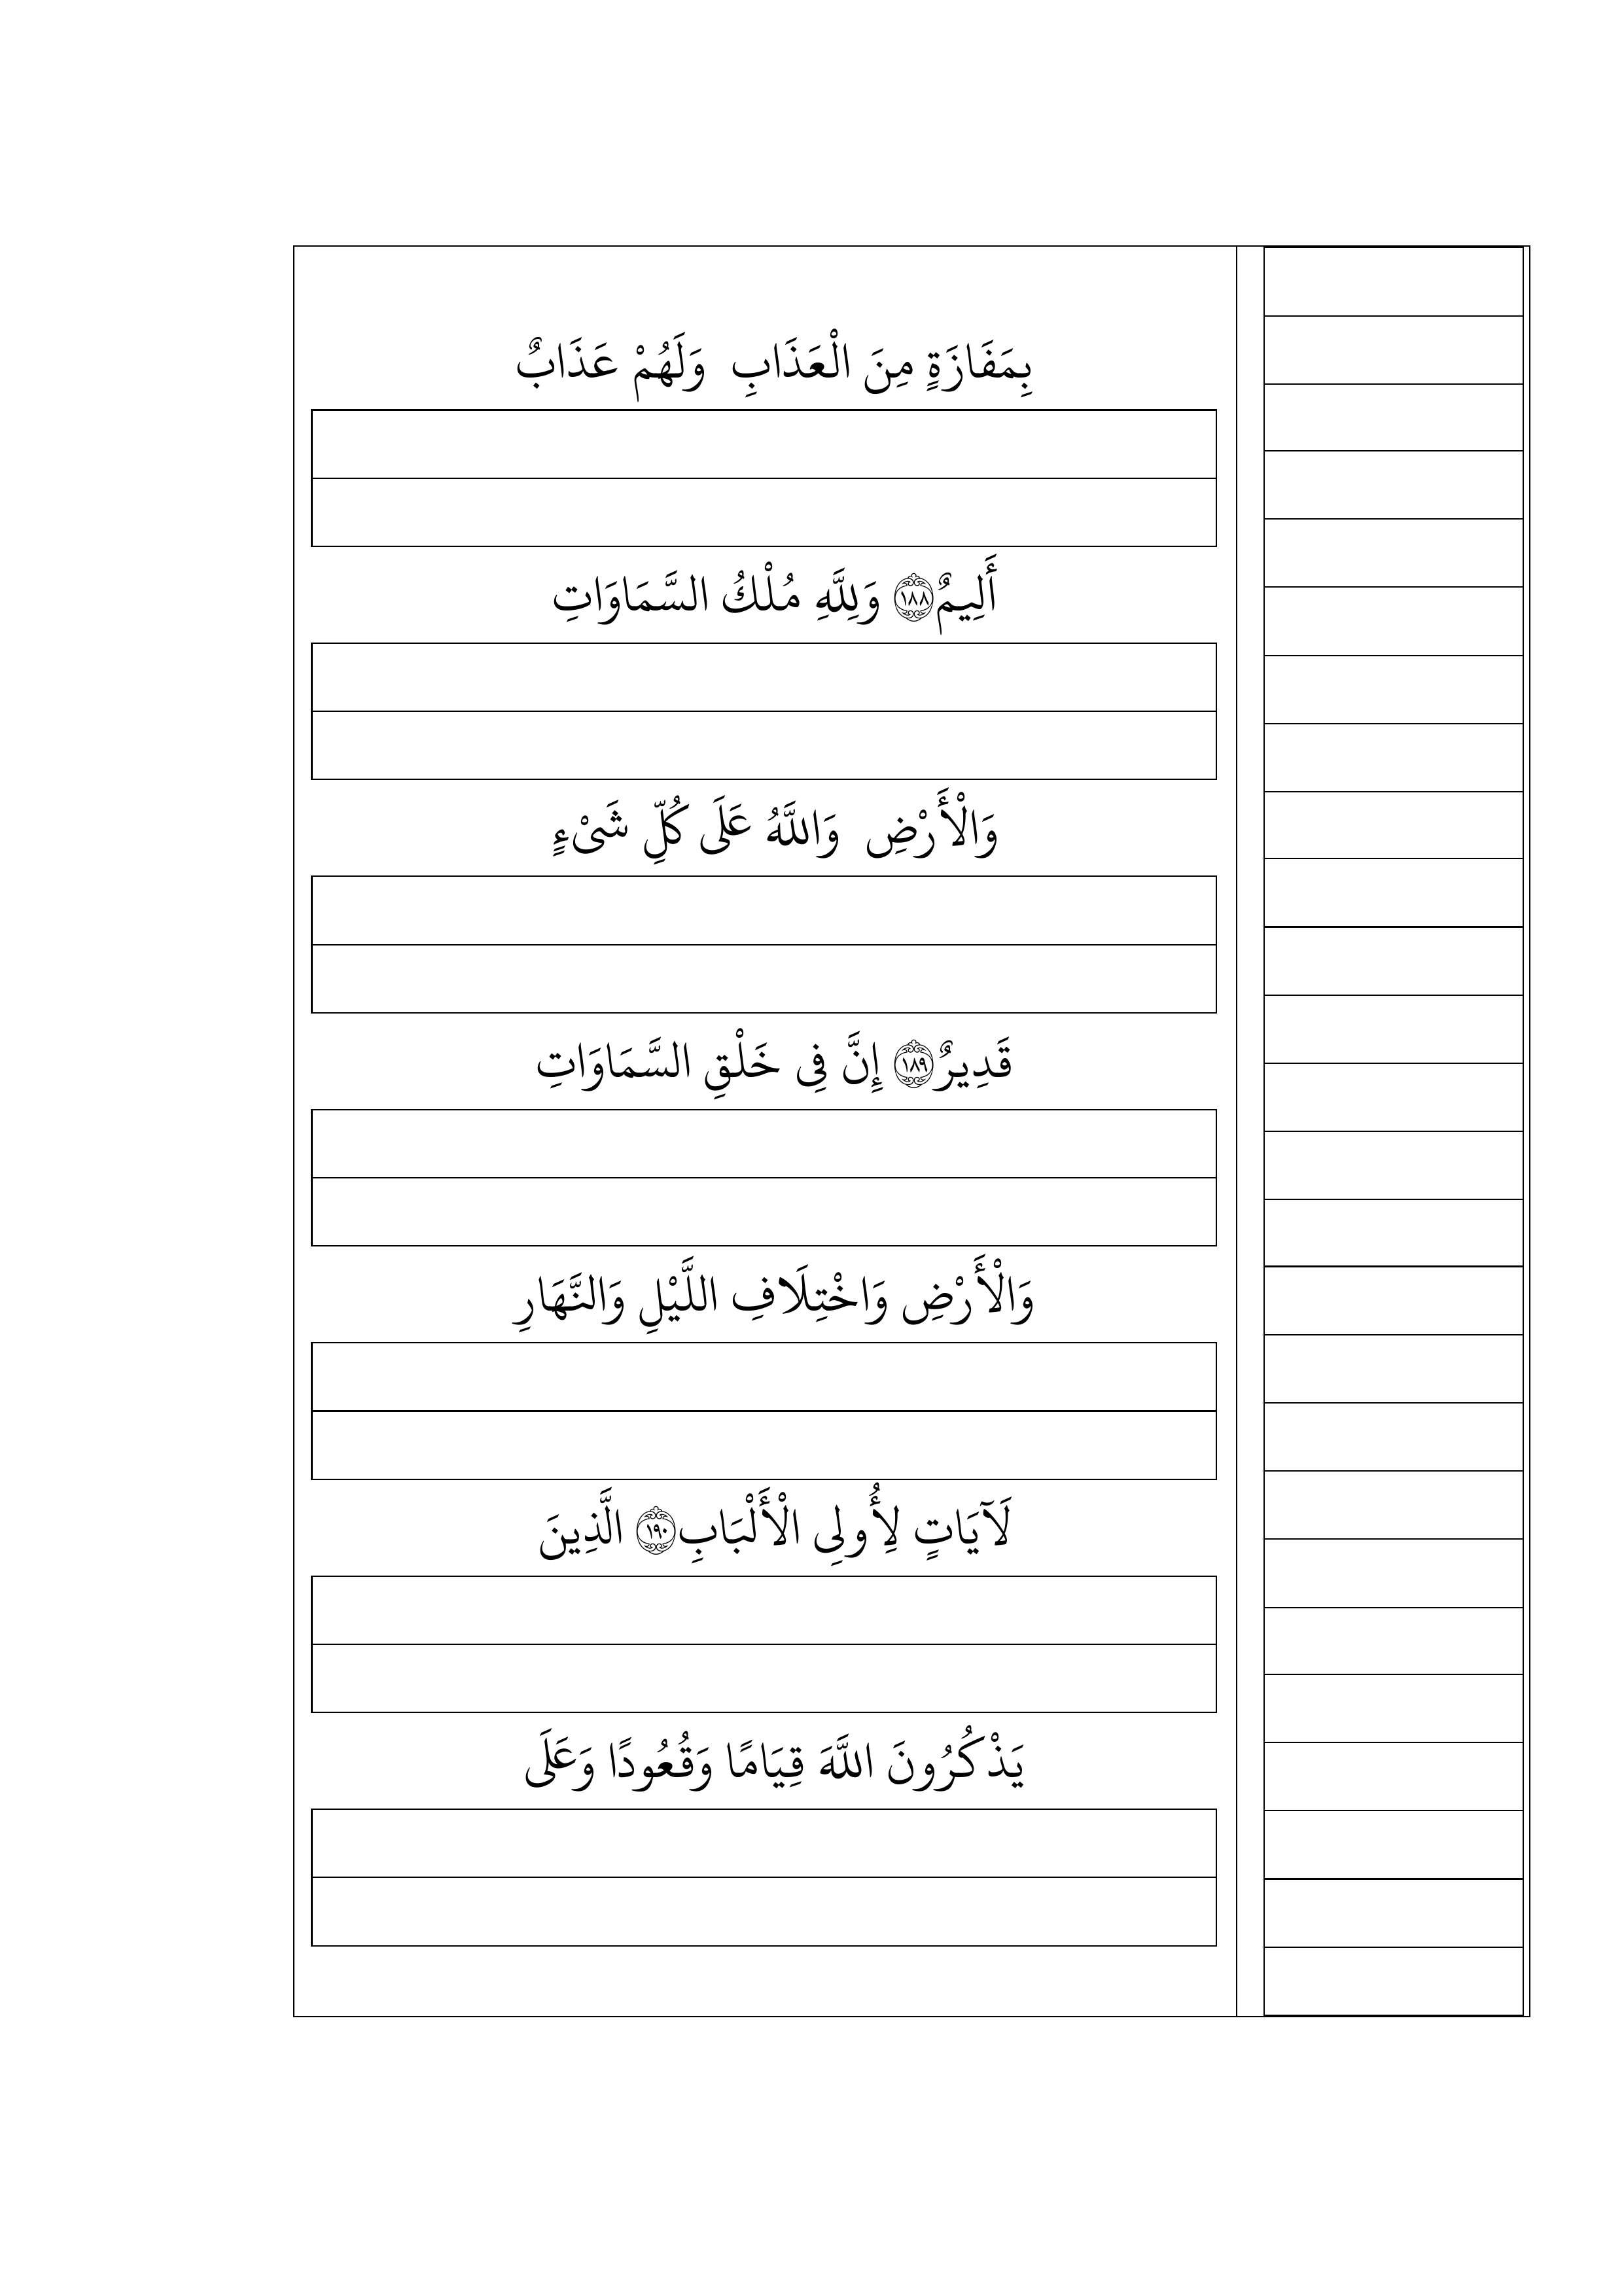 بِمَفَازَةٍ مِنَ الْعَذَابِ وَلَهُمْ عَذَابٌ
أَلِيمٌ ﴿١٨٨﴾ وَلِلَّهِ مُلْكُ السَّمَاوَاتِ
وَالْأَرْضِ وَاللَّهُ عَلَى كُلِّ شَىْءٍ
قَدِيرٌ ﴿١٨٩﴾ إِنَّ فِى خَلْقِ السَّمَاوَاتِ
وَالْأَرْضِ وَاخْتِلَافِ اللَّيْلِ وَالنَّهَارِ
لَآيَاتٍ لِأُولِى الْأَلْبَابِ ﴿١٩٠﴾ الَّذِينَ
يَذْكُرُونَ اللَّهَ قِيَامًا وَقُعُودًا وَعَلَى